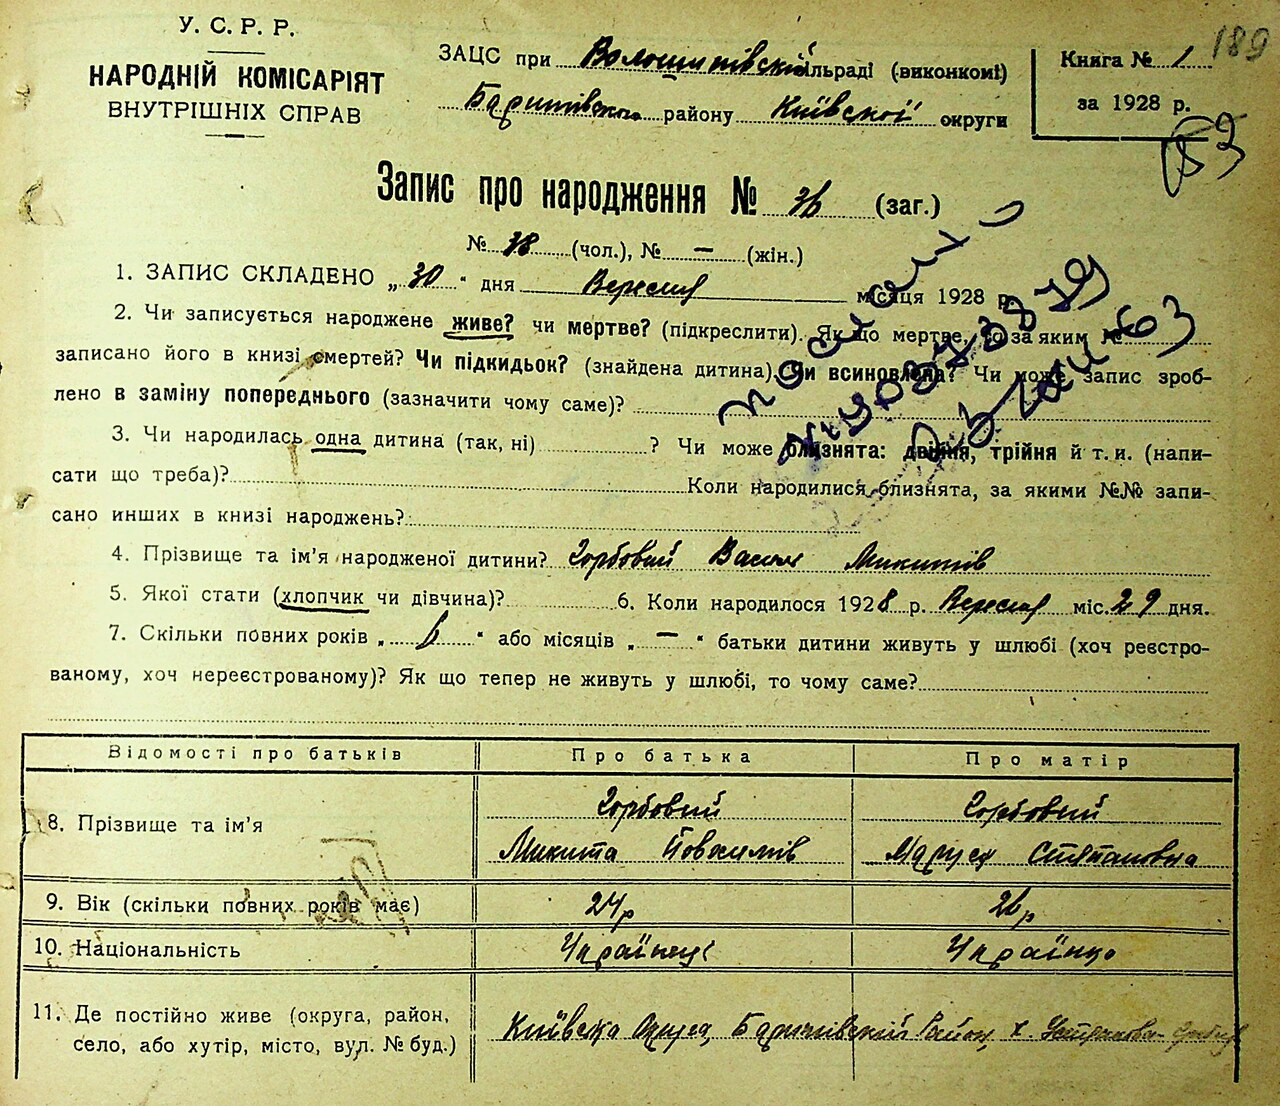 У. С. Р. Р.
НАРОДНІЙ КОМІСАРІЯТ
ВНУТРІШНІХ СПРАВ
ЗАЦС при Волошинівскій льраді (виконкомі)
Баришівсково району Київскої округи
Книга № 1
за 1928 р.
189
Запис про народження № 36 (заг.)
№ 38 (чол.), № — (жін.)
1. ЗАПИС СКЛАДЕНО „30" дня Вересня місяця 1928 р.
2. Чи записується народжене живе? чи мертве? (підкреслити). Як що мертве, то за яким №
записано його в книзі смертей? Чи підкидьок? (знайдена дитина), чи всиновлена? Чи може запис зроб-
лено в заміну попереднього (зазначити чому саме)?
3. Чи народилась одна дитина (так, ні) ? Чи може близнята: двійня, трійня й т. и. (напи-
сати що треба)? Коли народилися близнята, за якими №№ запи-
сано инших в книзі народжень?
4. Прізвище та ім'я народженої дитини? Горбовий Васил Микитів
5. Якої стати (хлопчик чи дівчина)? 6. Коли народилося 1928 р. Вересня міс. 29 дня.
7. Скільки повних років „ 6 " або місяців „ — " батьки дитини живуть у шлюбі (хоч реєстро-
ваному, хоч нереєстрованому)? Як що тепер не живуть у шлюбі, то чому саме?
Відомості про батьків Про батька Про матір
8. Прізвище та ім'я Горбовий Микита Йовхимів Горбовий Маруся Степановна
9. Вік (скільки повних років має) 24р 26р
10. Національність Українец Українка
11. Де постійно живе (округа, район, село, або хутір, місто, вул. № буд.) Київска Округа, Баришівский Район, х.